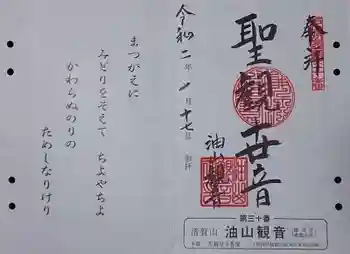 奉拝
聖観世音
油山観音
令和二年 月十七日
第三十番
清賀山 油山観音
まつがえに
みどりをそえて ちよやちよ
かわらぬのりの
ためしなりけり